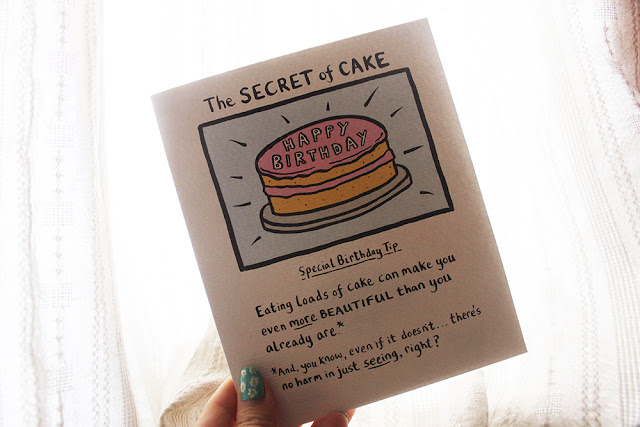 The SECRET of CAKE
HAPPY
BIRTHDAY
Special Birthday Tip
Eating loads of cake can make you
even more BEAUTIFUL than you
already are.*
*And, you know, even if it doesn't... there's
no harm in just seeing, right?